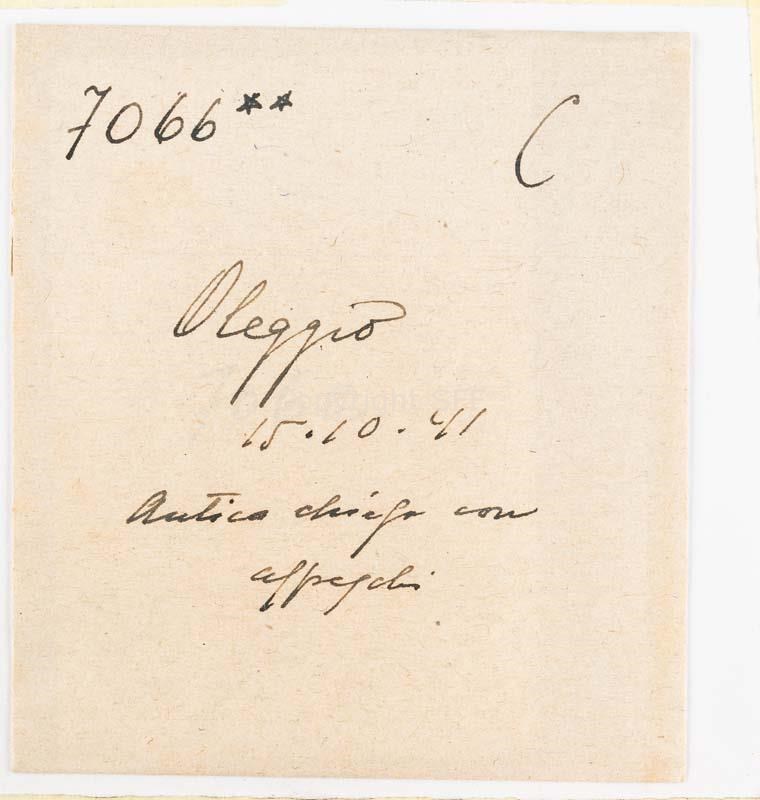 7066** C
Oleggio
15.10.41
Antica chiesa con
affreschi